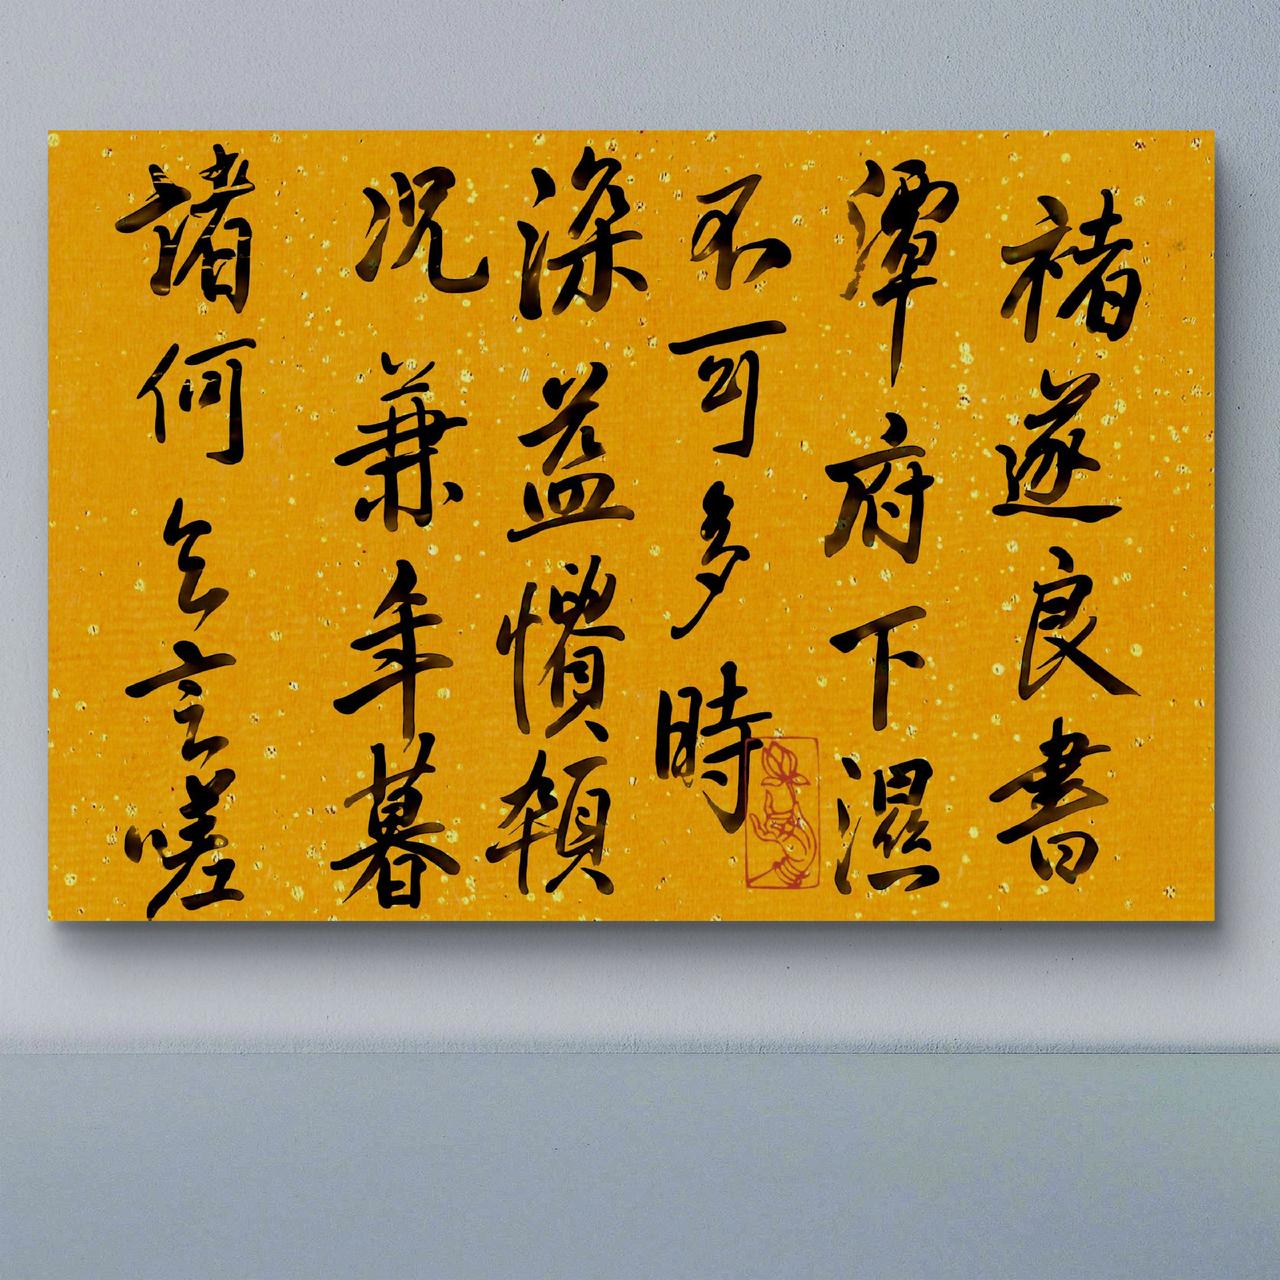 褚遂良書
潭府下濕
不可多時
深益憒頓
況兼年暮
諸何足言嗟